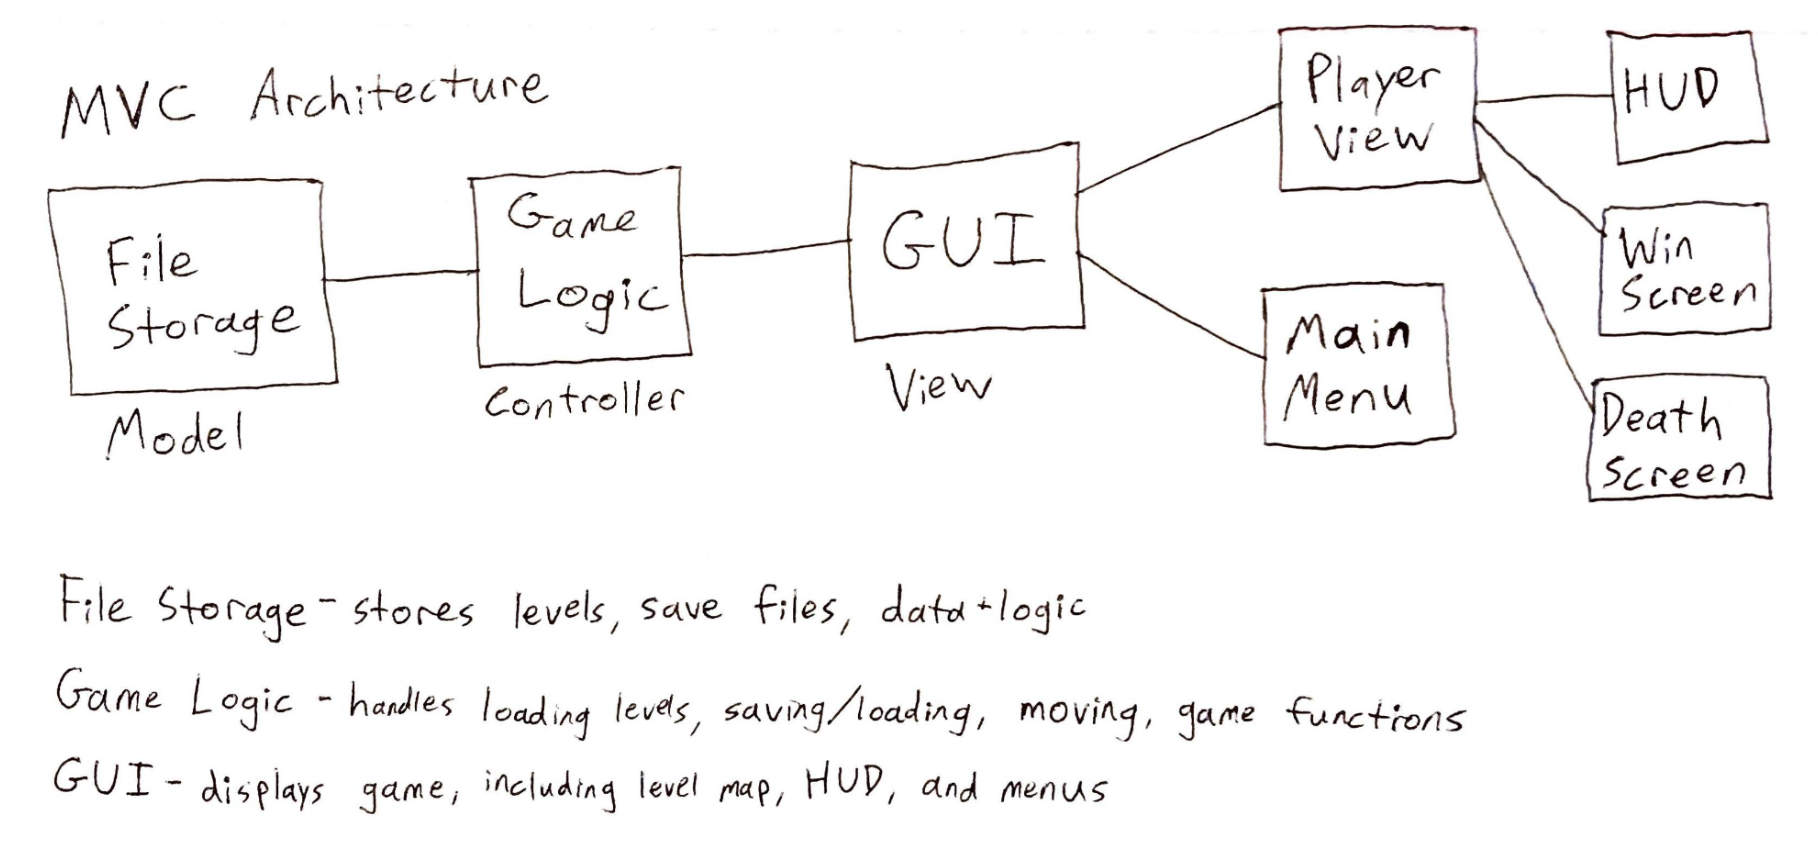 MVC Architecture
File
Storage
Model
Game
Logic
Controller
GUI
View
Player
View
Main
Menu
HUD
Win
Screen
Death
Screen
File Storage - stores levels, save files, data + logic
Game Logic - handles loading levels, saving/loading, moving, game functions
GUI - displays game, including level map, HUD, and menus